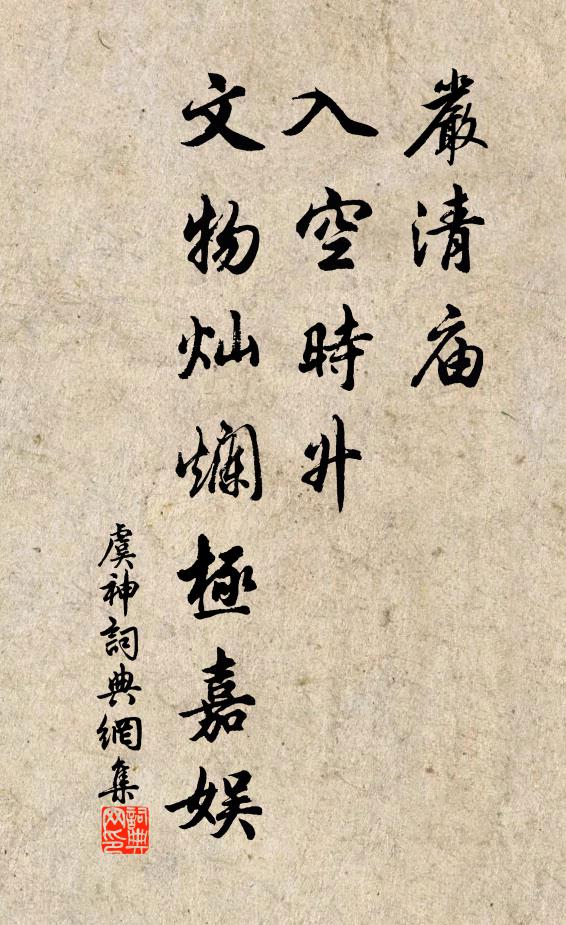 嚴清庙
入空時升
文物灿爛極嘉娱
虞神詞典網集
詞典网印